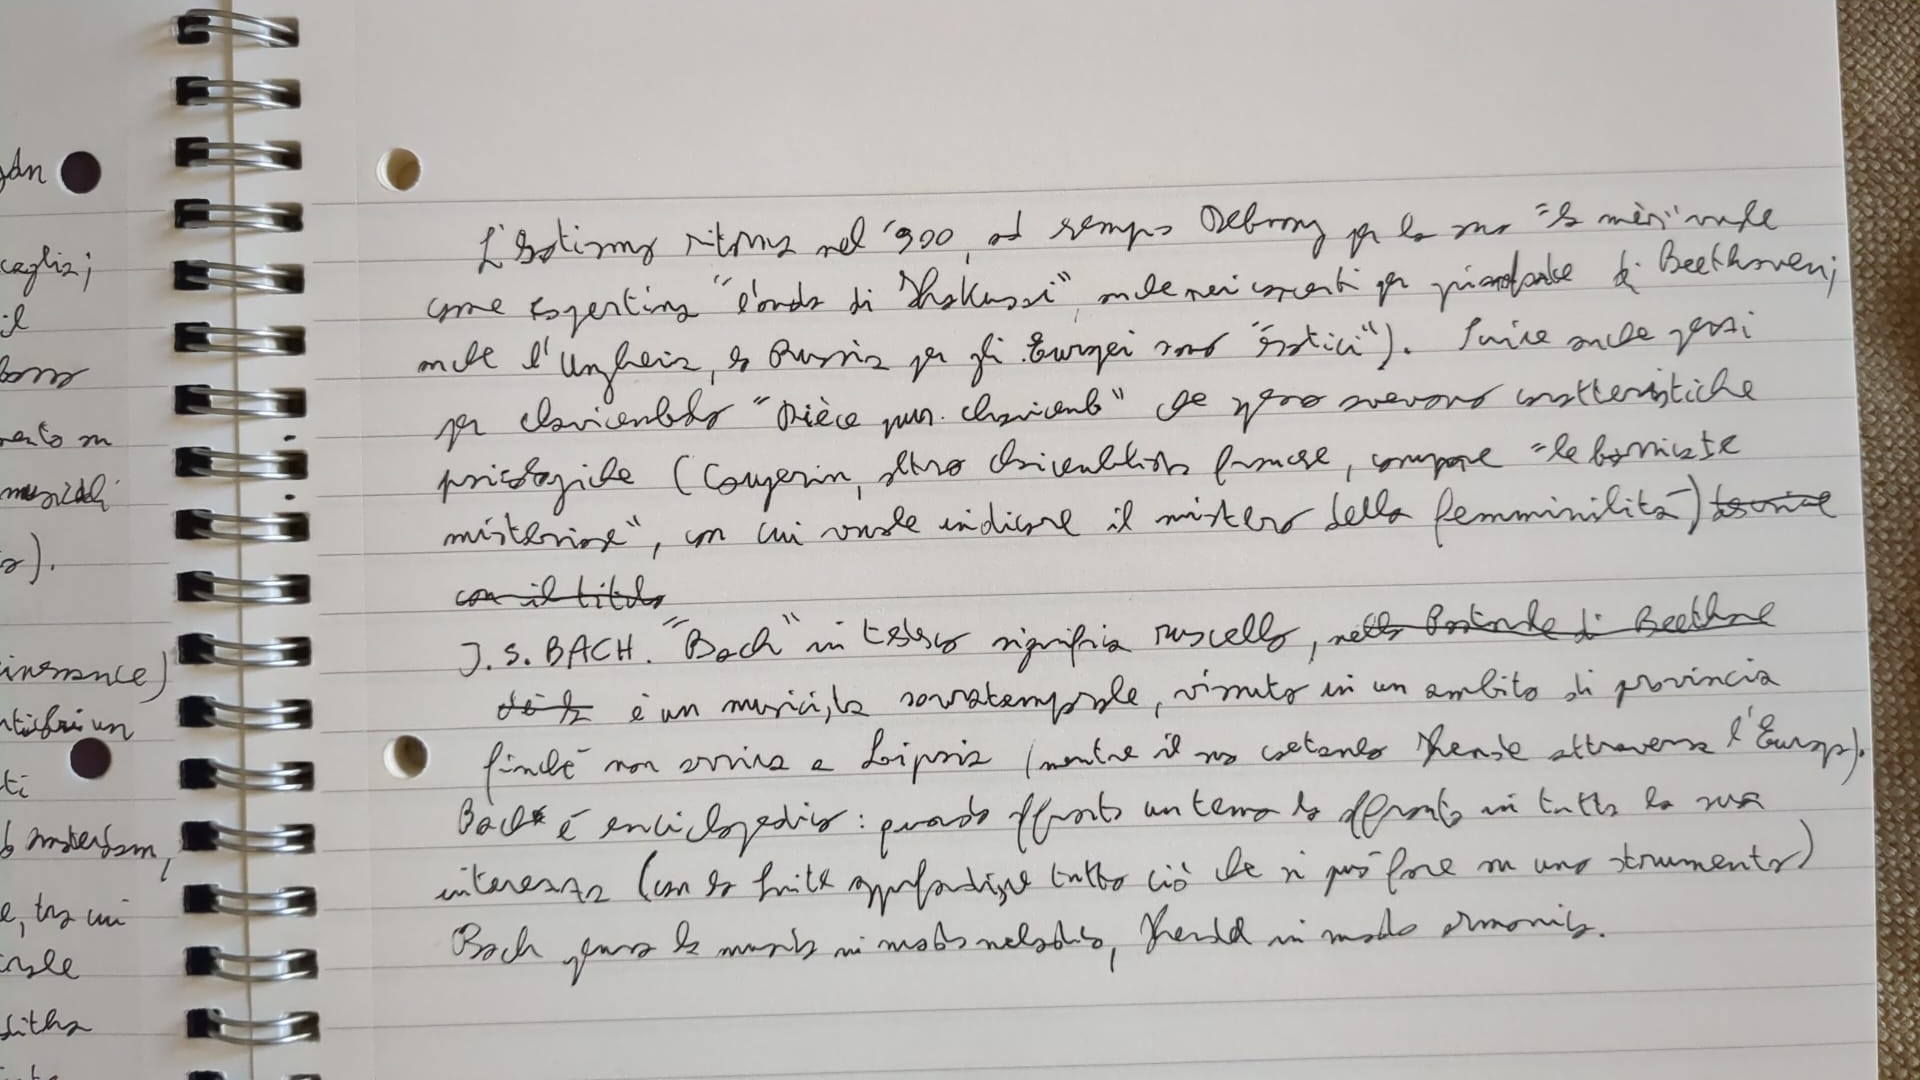 dn
caglia;
il
mento su
musicali
o).
ti
Amsterdam,
e, tra cui
L'esotismo ritorna nel '900, ad esempio Debussy per la sua "la mèr" vuole
come copertina "l'onda di Hokusai", anche nei concerti per pianoforte di Beethoven;
anche l'Ungheria, la Russia per gli Europei sono "esotici"). Scrive anche pezzi
per clavicembalo "Pièce pur clavicemb" che però avevano caratteristiche
psicologiche (Couperin, altro clavicembalista francese, compone "le barricate
misteriose", con cui vuole indicare il mistero della femminilità)
con il titolo
J. S. BACH. "Bach" in tedesco significa ruscello, nelle Pastorale di Beethove
è un musicista sovratemporale, vissuto in un ambito di provincia
finché non arriva a Leipzig (mentre il suo coetaneo Hendel attraversa l'Europa).
Bach è enciclopedico: quando affronta un tema lo affronta in tutta la sua
interezza (con la suite approfondisce tutto ciò che si può fare su uno strumento)
Bach pensa la musica in modo melodico, Hendel in modo armonico.